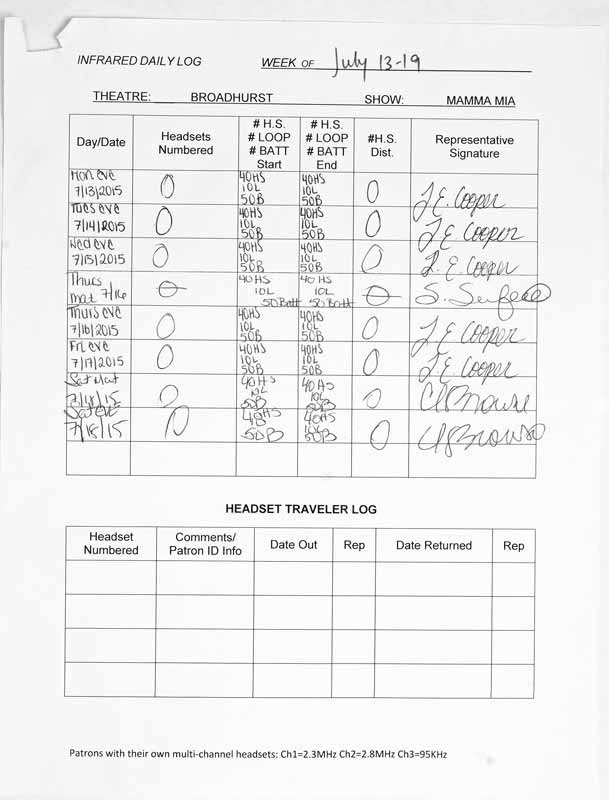 INFRARED DAILY LOG WEEK OF July 13-19
THEATRE: BROADHURST SHOW: MAMMA MIA
Day/Date Headsets Numbered # H.S. # LOOP # BATT Start # H.S. # LOOP # BATT End #H.S. Dist. Representative Signature
Mon eve 7/13/2015 0 40HS 10L 50B 40HS 10L 50B 0 J. E. Cooper
Tues eve 7/14/2015 0 40HS 10L 50B 40HS 10L 50B 0 J. E. Cooper
Wed eve 7/15/2015 0 40HS 10L 50B 40HS 10L 50B 0 J. E. Cooper
Thurs mat 7/16 0 40HS 10L 50Batt 40HS 10L 50Batt 0 S.
Thurs eve 7/16/2015 0 40HS 10L 50B 40HS 10L 50B 0 J. E. Cooper
Fri eve 7/17/2015 0 40HS 10L 50B 40HS 10L 50B 0 J. E. Cooper
Sat Mat 7/18/15 0 40HS 10L 50B 40HS 10L 50B 0
Sat eve 7/18/15 0 40HS 50B 40HS 10L 50B 0
HEADSET TRAVELER LOG
Headset Numbered Comments/ Patron ID Info Date Out Rep Date Returned Rep
Patrons with their own multi-channel headsets: Ch1=2.3MHz Ch2=2.8MHz Ch3=95KHz